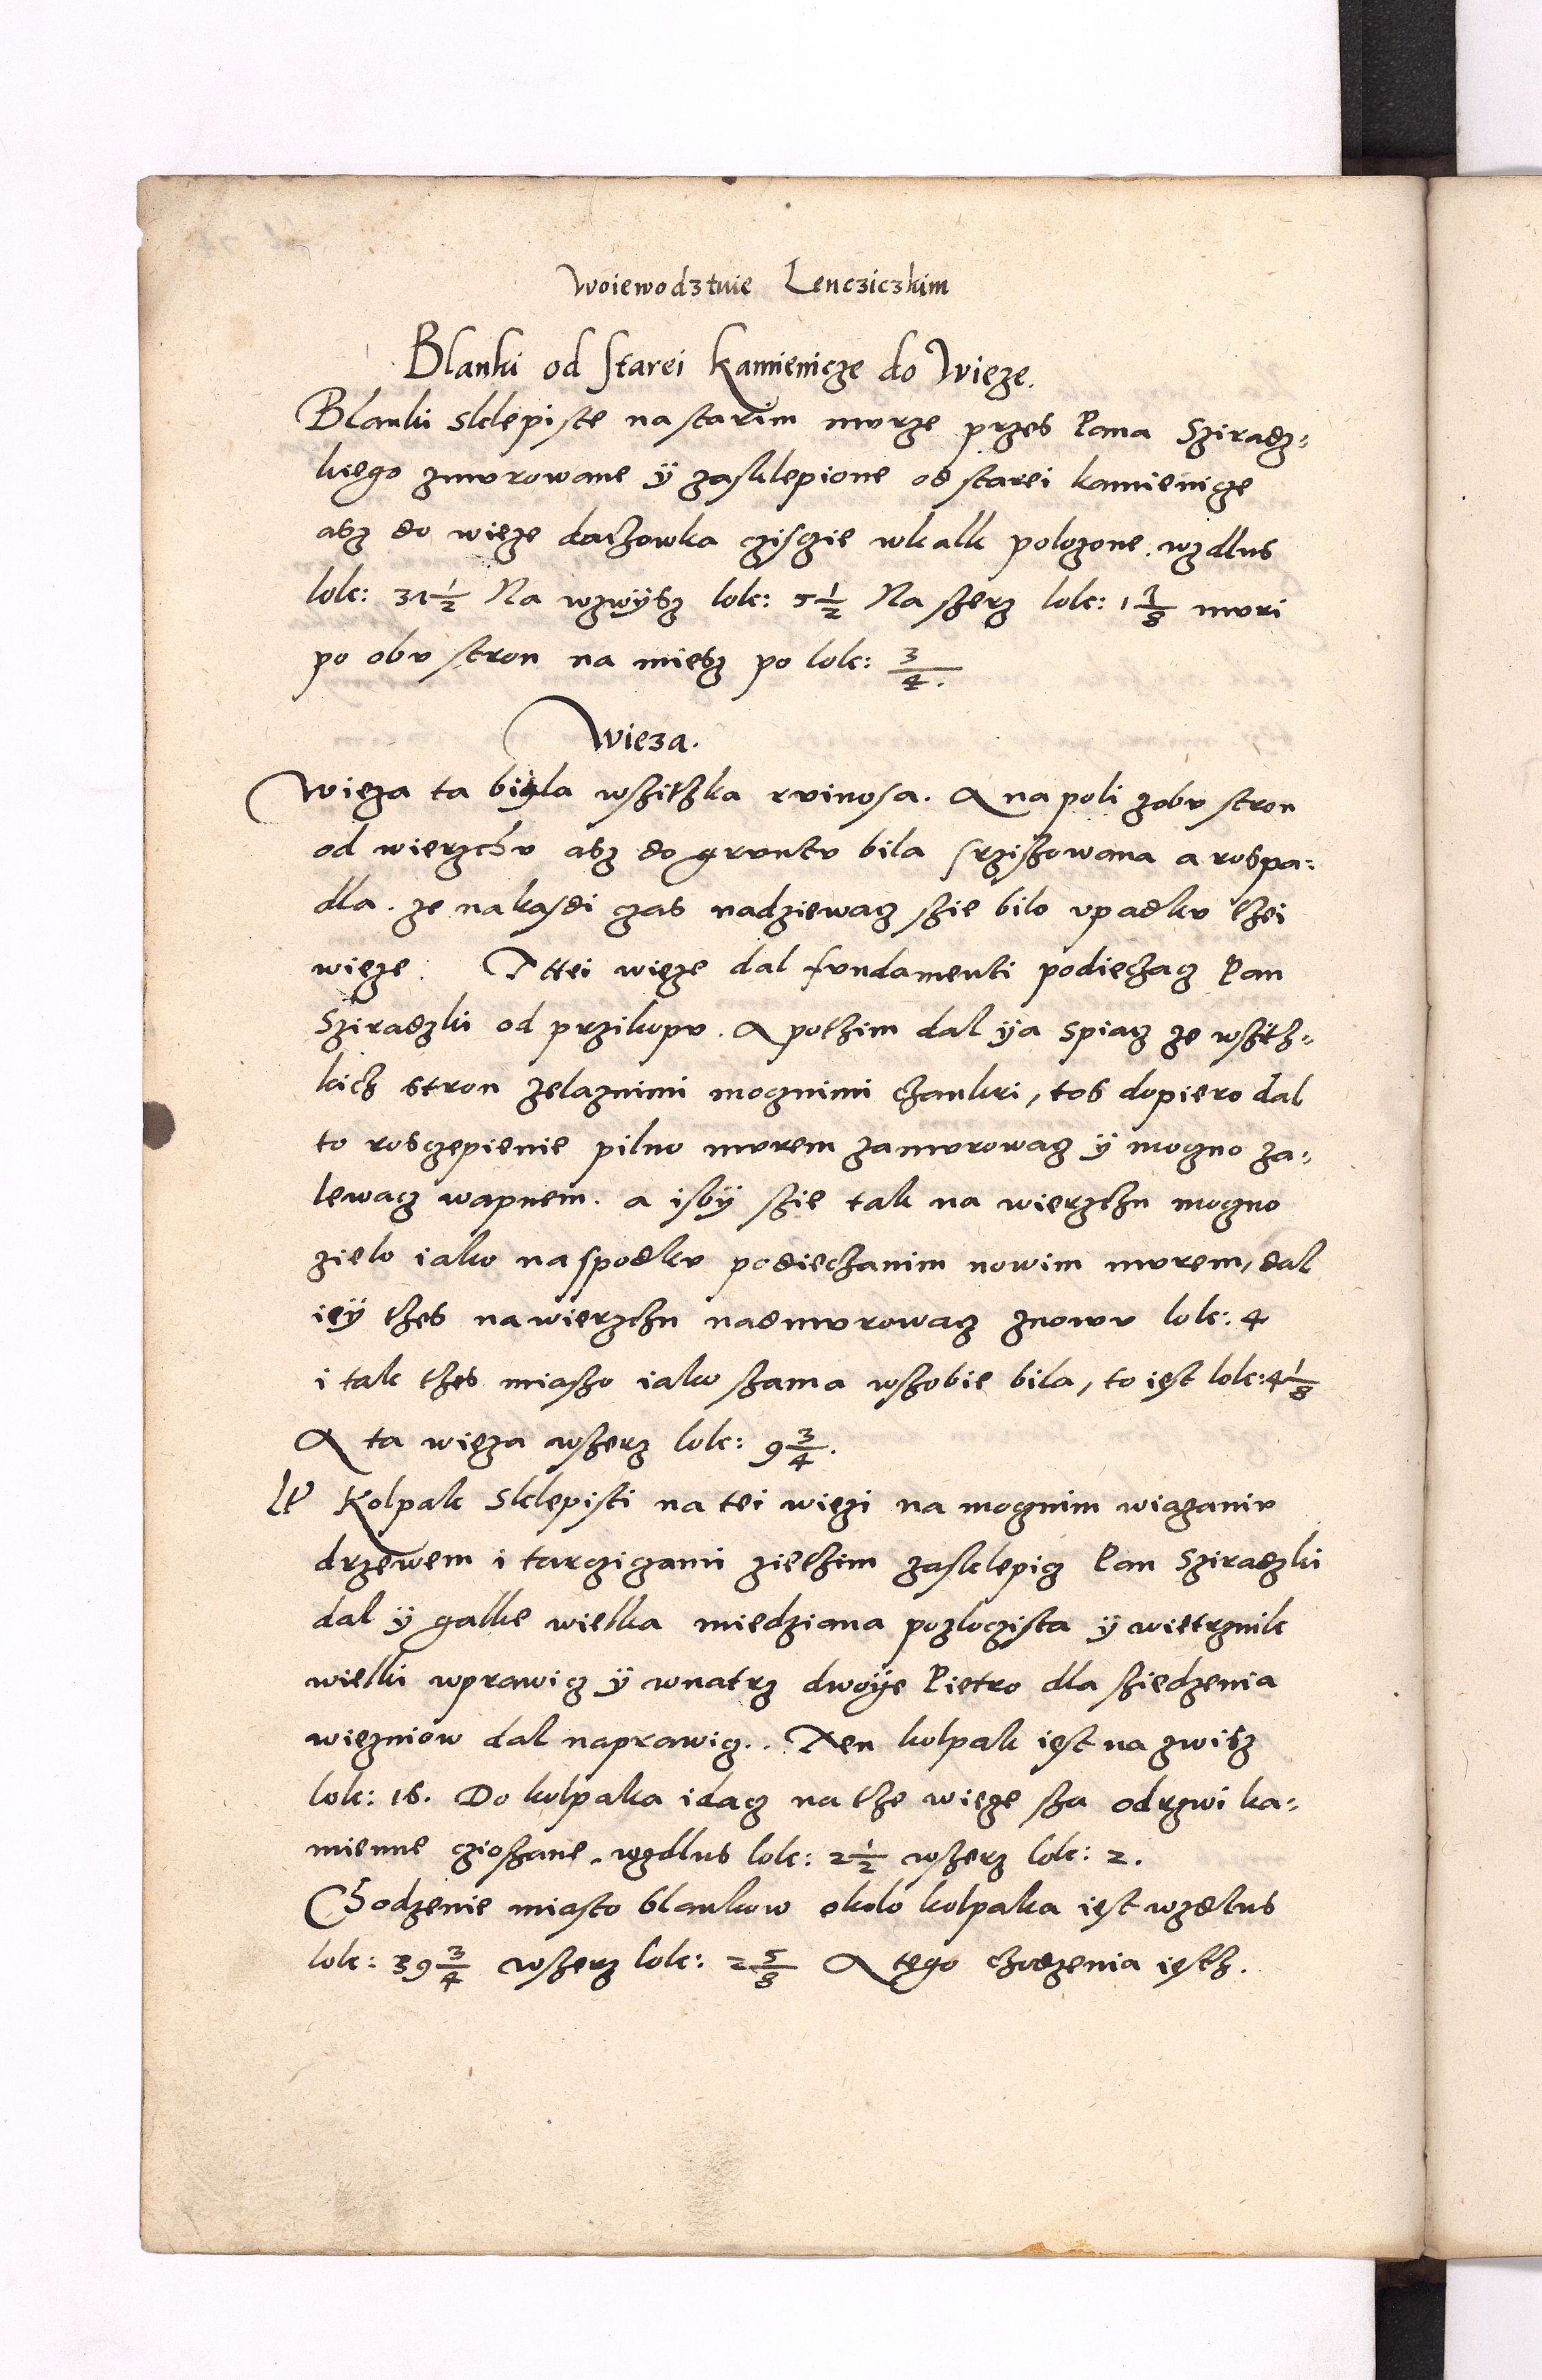 Woiewodztwie Lencziczkim
Blanki od Starei Kamienicze do Wieze.
Blanki sklepiste na starim mvrze przes Pana Sziradz=
kiego zmvrowane ÿ zasklepione od starei kamienicze
asz do wieze dachowka cziscie wkalk polozone. wzdlus
lok: 31 1/2 Na wzwÿsz lok: 5 1/2 Na szerz lok: 1 7/8 mvri
po obv stron na miesz po lok: 3/4.
Wieza.
Wieza ta biyla wszitzka rvinosa. A na poli zobv stron
od wierzchv asz do grvntv bila srziszowana a rospa=
dla. ze na kasdi czas nadziewacz szie bilo vpadkv thei
wieze. Ttei wieze dal fvndamenti podiechacz Pan
Sziradzki od przikopv. A pothim dal ÿa spiacz ze wszith=
kich stron zelaznimi mocznimi hankri, tos dopiero dal
to rosczepienie pilno mvrem zamvrowacz ÿ moczno za=
lewacz wapnem. a isbÿ szie tak na wierzchu moczno
zielo iako na spodkv podiechanim nowim mvrem, dal
ieÿ thes na wierzchu nadmvrowacz znowv lok: 4
i tak thes miaszo iako szama wszobie bila, to iest lok: 4 1/8
A ta wieza wszerz lok: 9 3/4.
It Kolpak Sklepisti na tei wiezi na mocznim wiazaniv
drzewem i tarcziczami zielhim zasklepicz Pan Sziradzki
dal ÿ galke wielka miedziana pozlocista ÿ wietrznik
wielki wprawicz ÿ wnatrz dwoÿe Pietro dla sziedzenia
wiezniow dal naprawicz. Ten kolpak iest na zwisz
lok: 16. Do kolpaka idacz na the wieze sza odrzwi ka=
mienne cziosane. wzdlus lok: 2 1/2 wszerz lok: 2.
Chodzenie miasto blankow okolo kolpaka iest wzdlus
lok: 39 3/4 wszerz lok: 2 5/8 A tego chodzenia iesth.